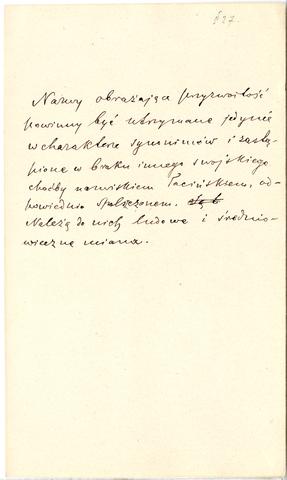 § 37.
Nazwy obrażające przyzwoitość
powinny być utrzymane jedynie
w charakterze synonimów i zastą-
pione w braku innego swojskiego
choćby nazwiskiem łacińskiem, od-
powiednio spolszczonem.
Należą do nich ludowe i średnio-
wieczne miana.